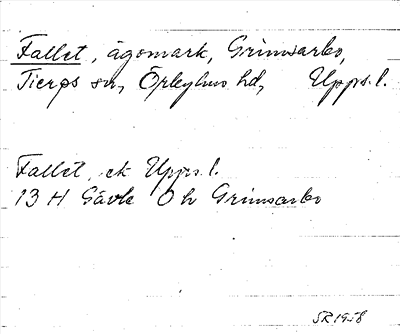 Fallet, ägomark, Grimsarbo,
Tierps sn, Örbyhus hd, Upps. l.
Fallet, ek Upps. l.
13 H Gävle 0 h Grimsarbo
SR 1958